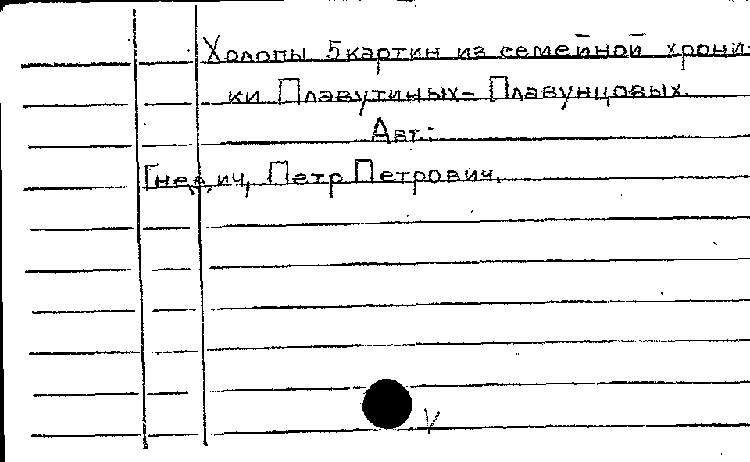 Холопы 5 картин из семейной хрони-
ки Плавутиных-Плавунцовых.
Авт.:
Гнедич, Петр Петрович.
V